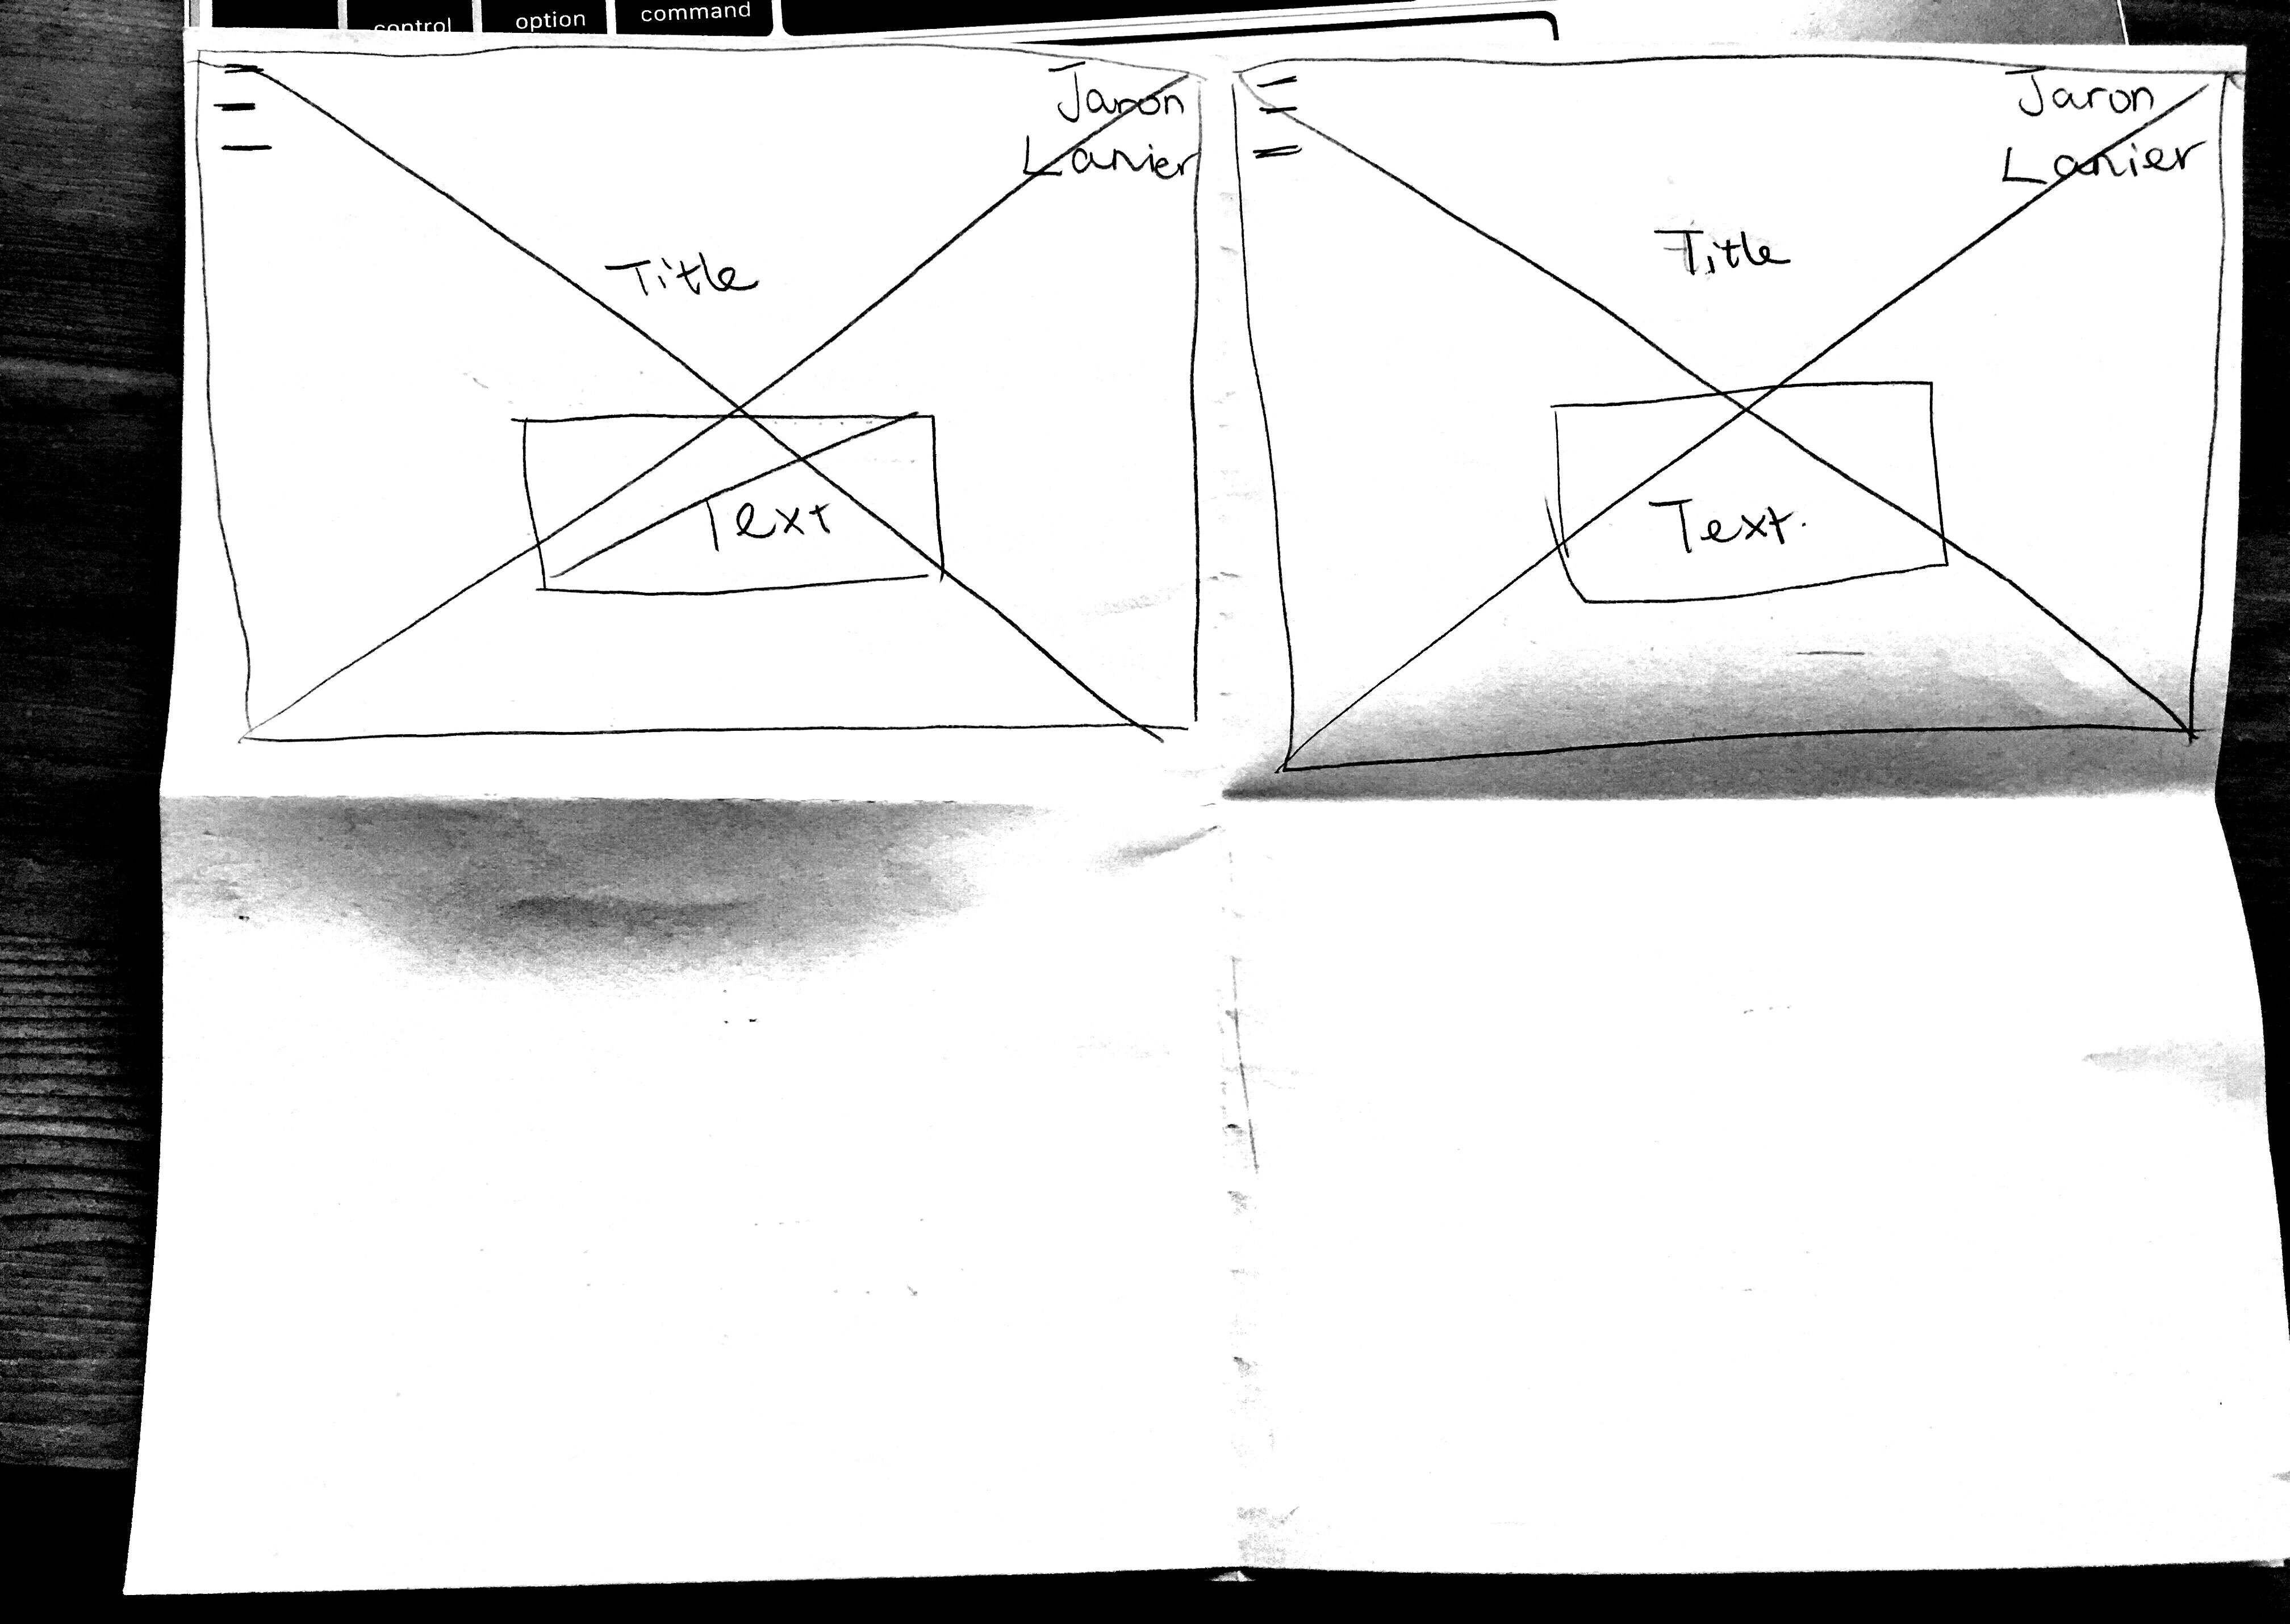 control
option
command
Jaron
Lanier
Title
Text
Jaron
Lanier
Title
Text.